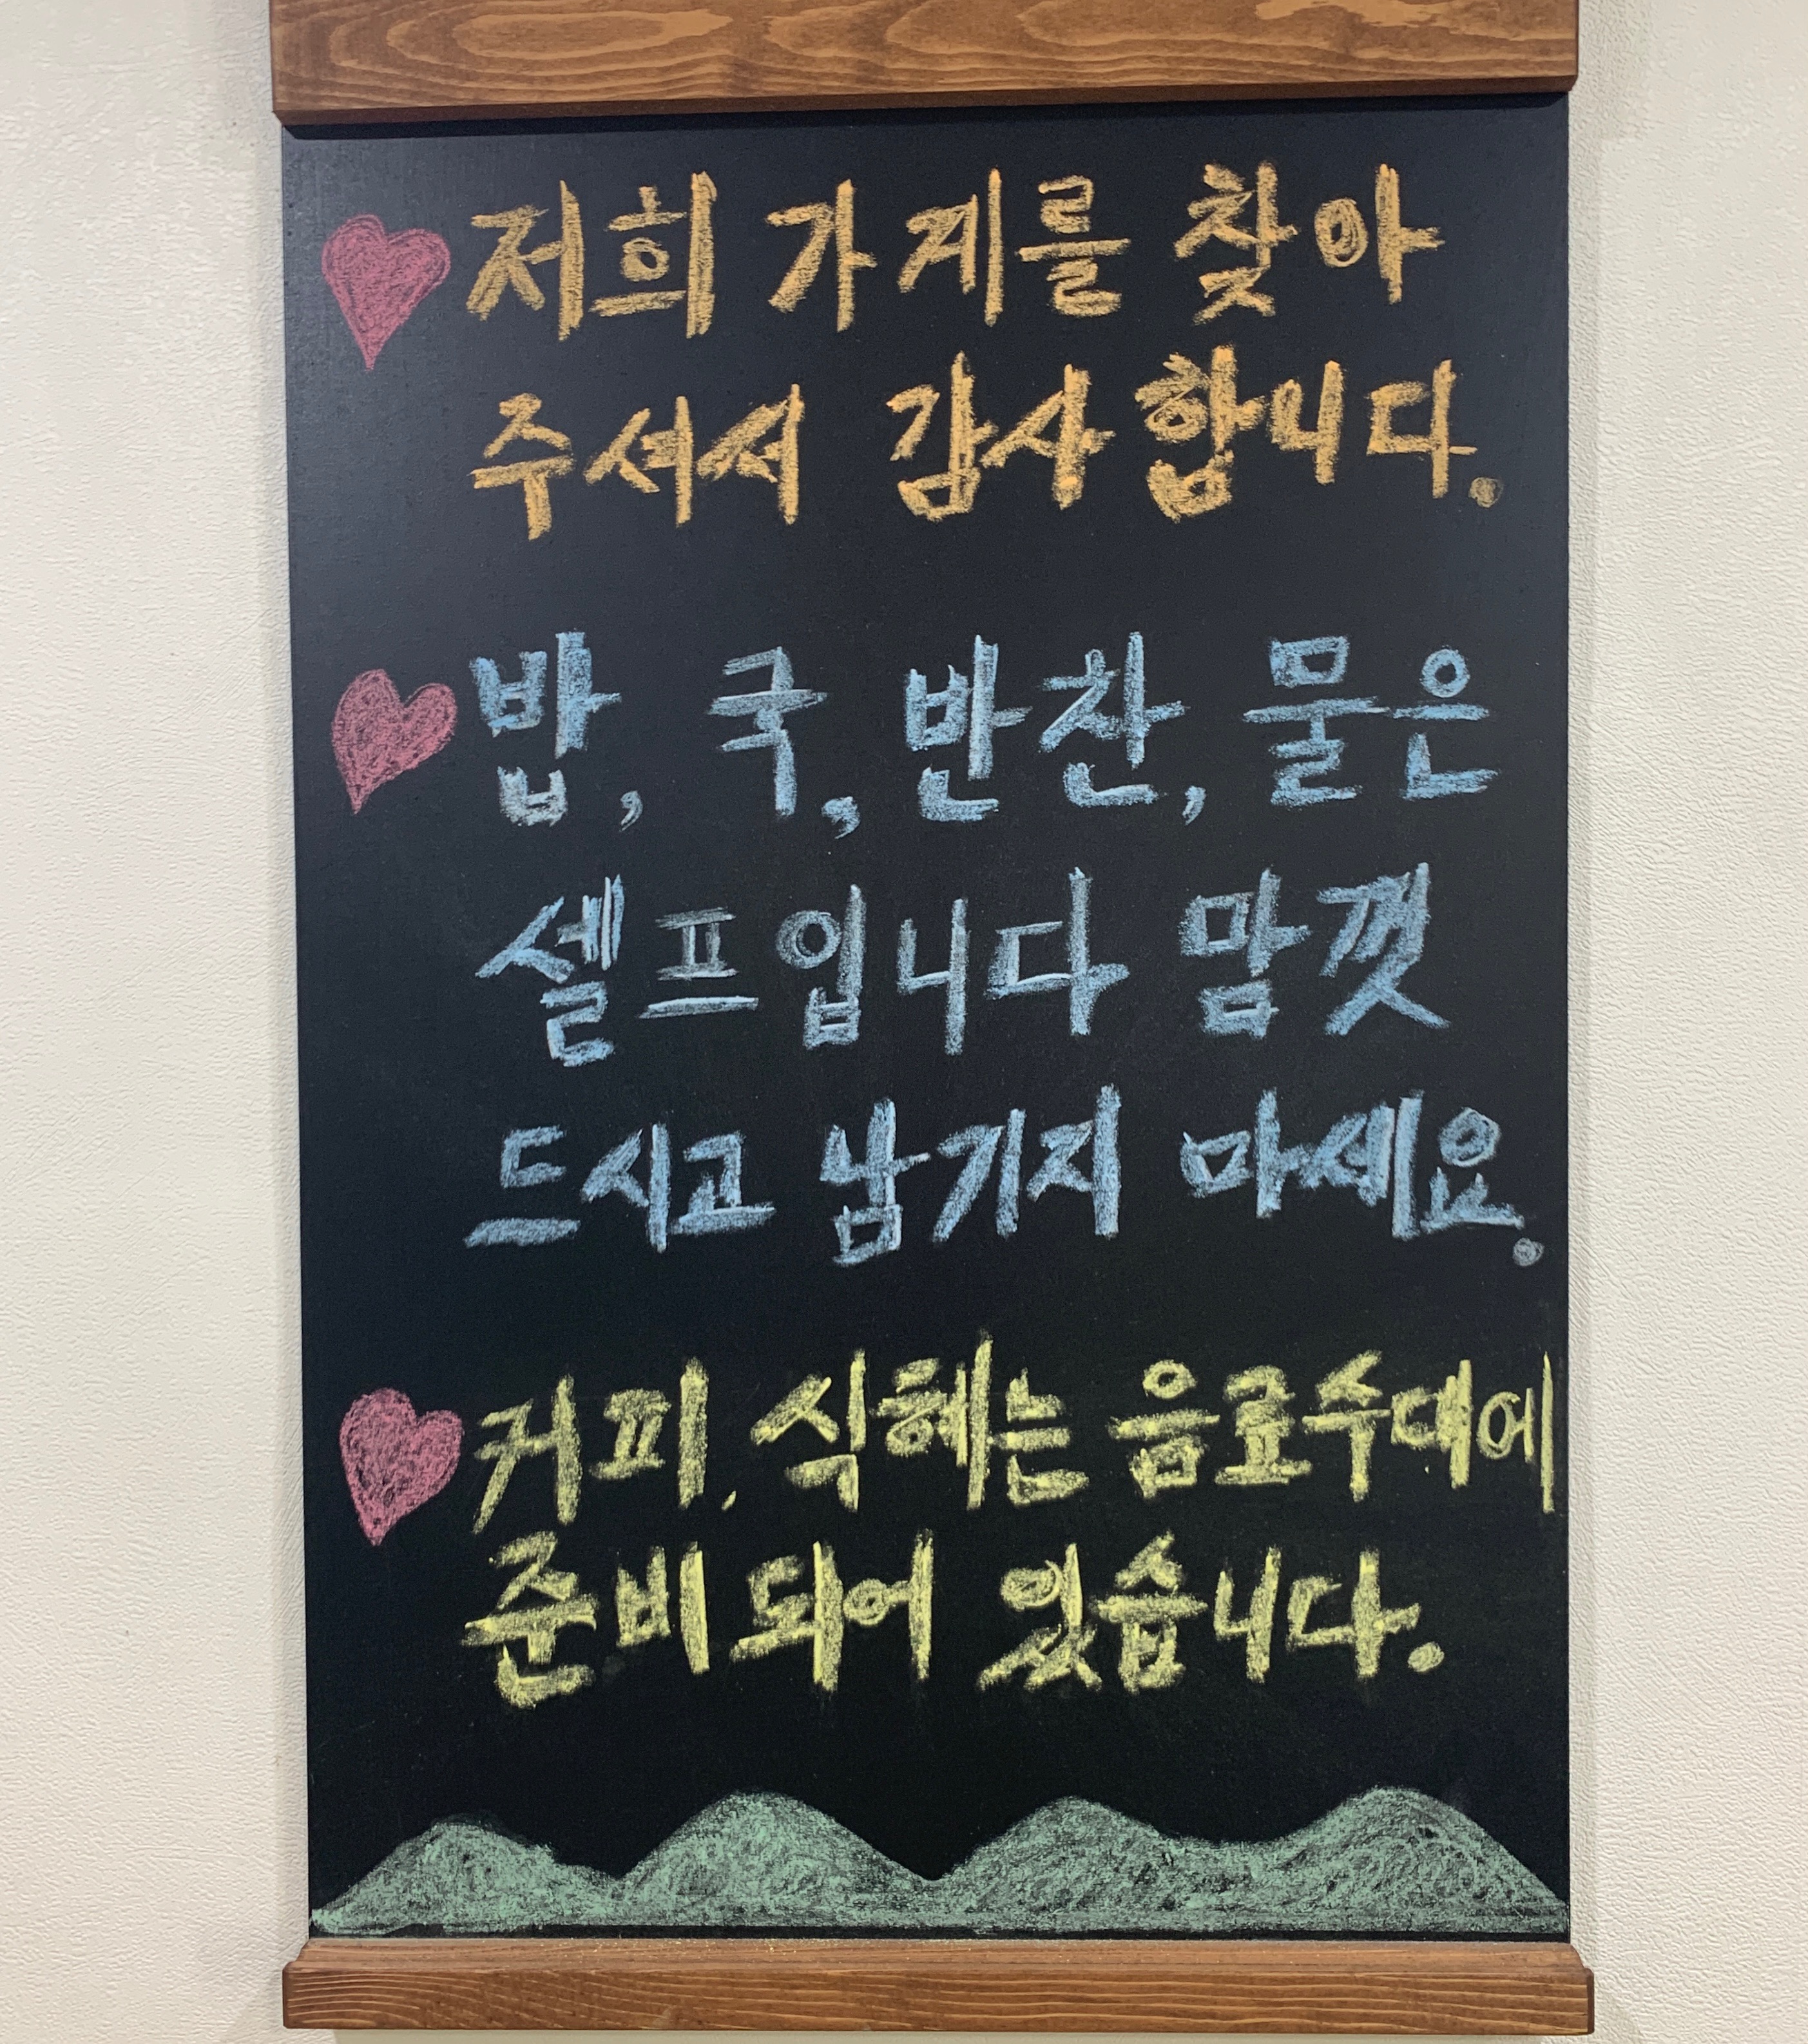 저희 가게를 찾아
주셔서 감사합니다.
밥, 국, 반찬, 물은
셀프입니다 맘껏
드시고 남기지 마세요.
커피, 식혜는 음료수대에
준비되어 있습니다.